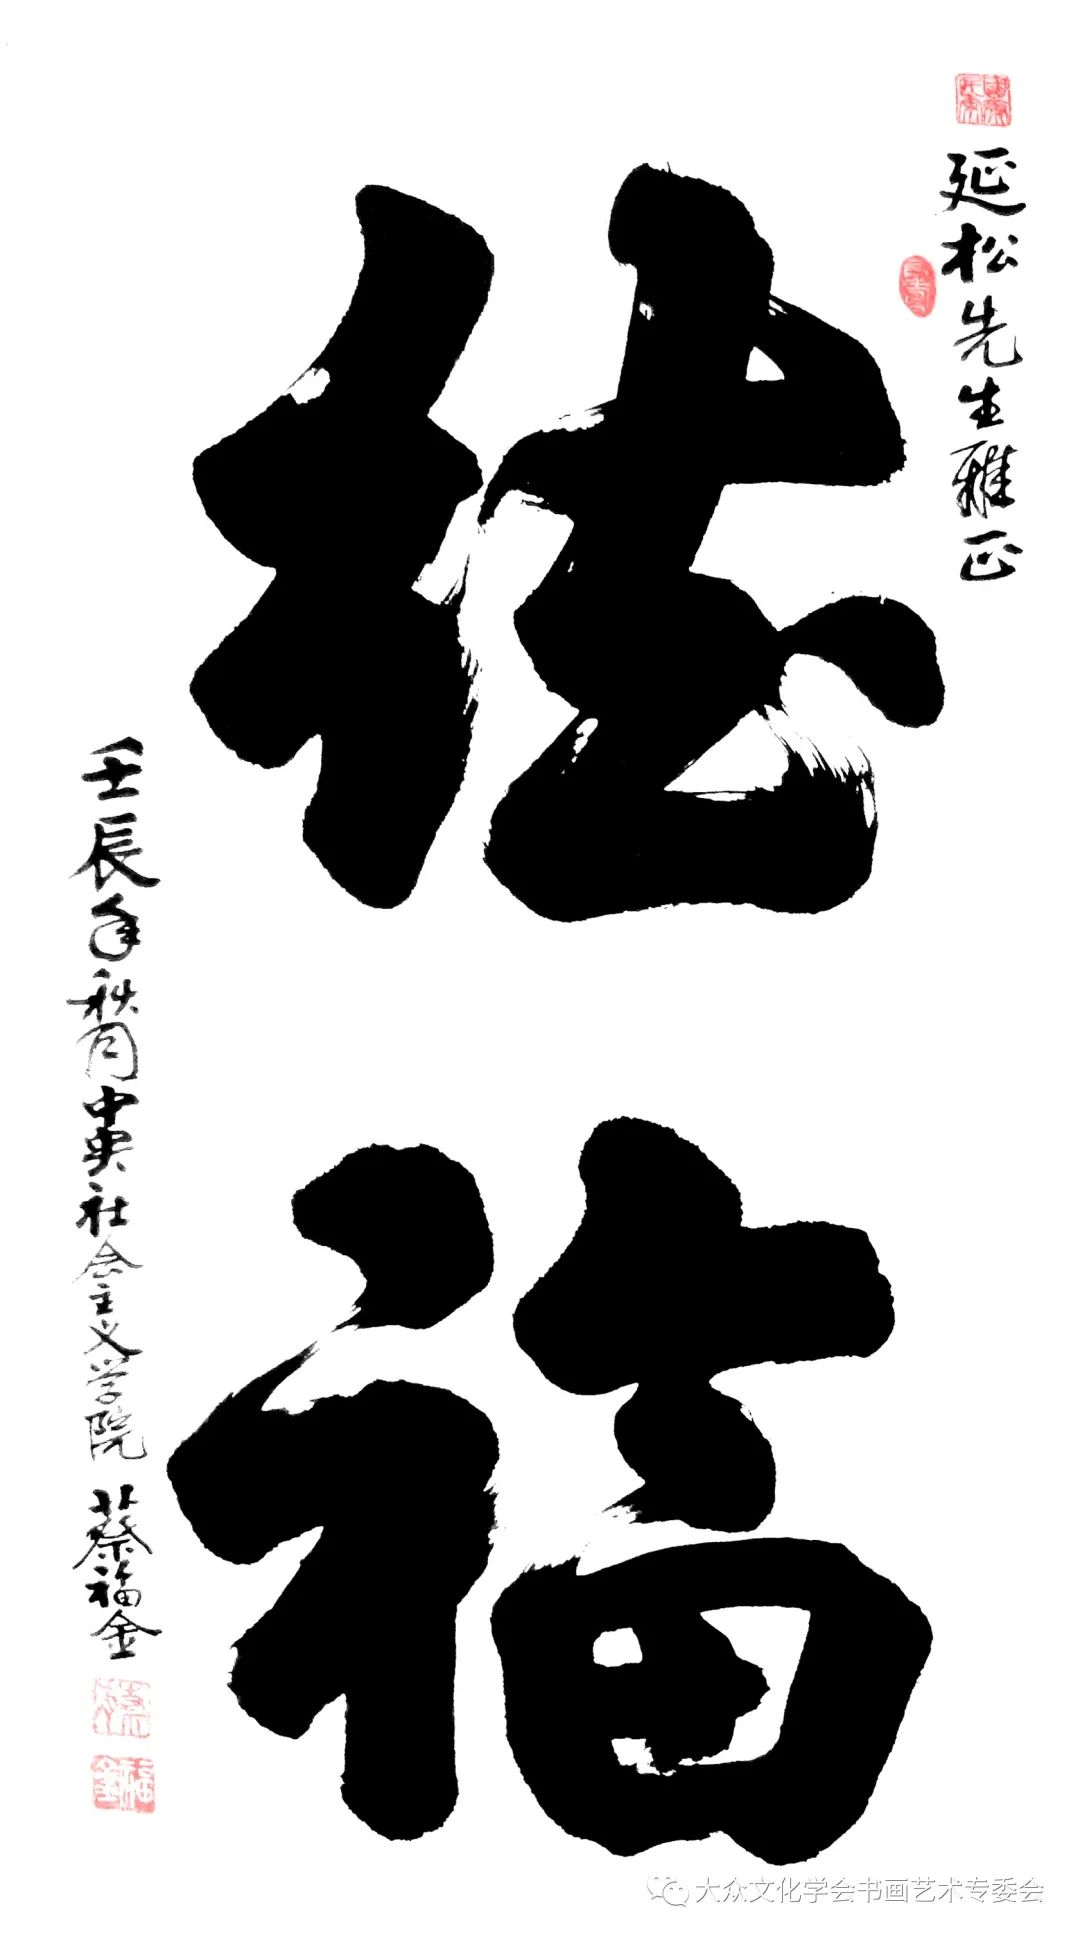 延松先生雅正
德福
壬辰年秋月中央社会主义学院 蔡福金
大众文化学会书画艺术专委会